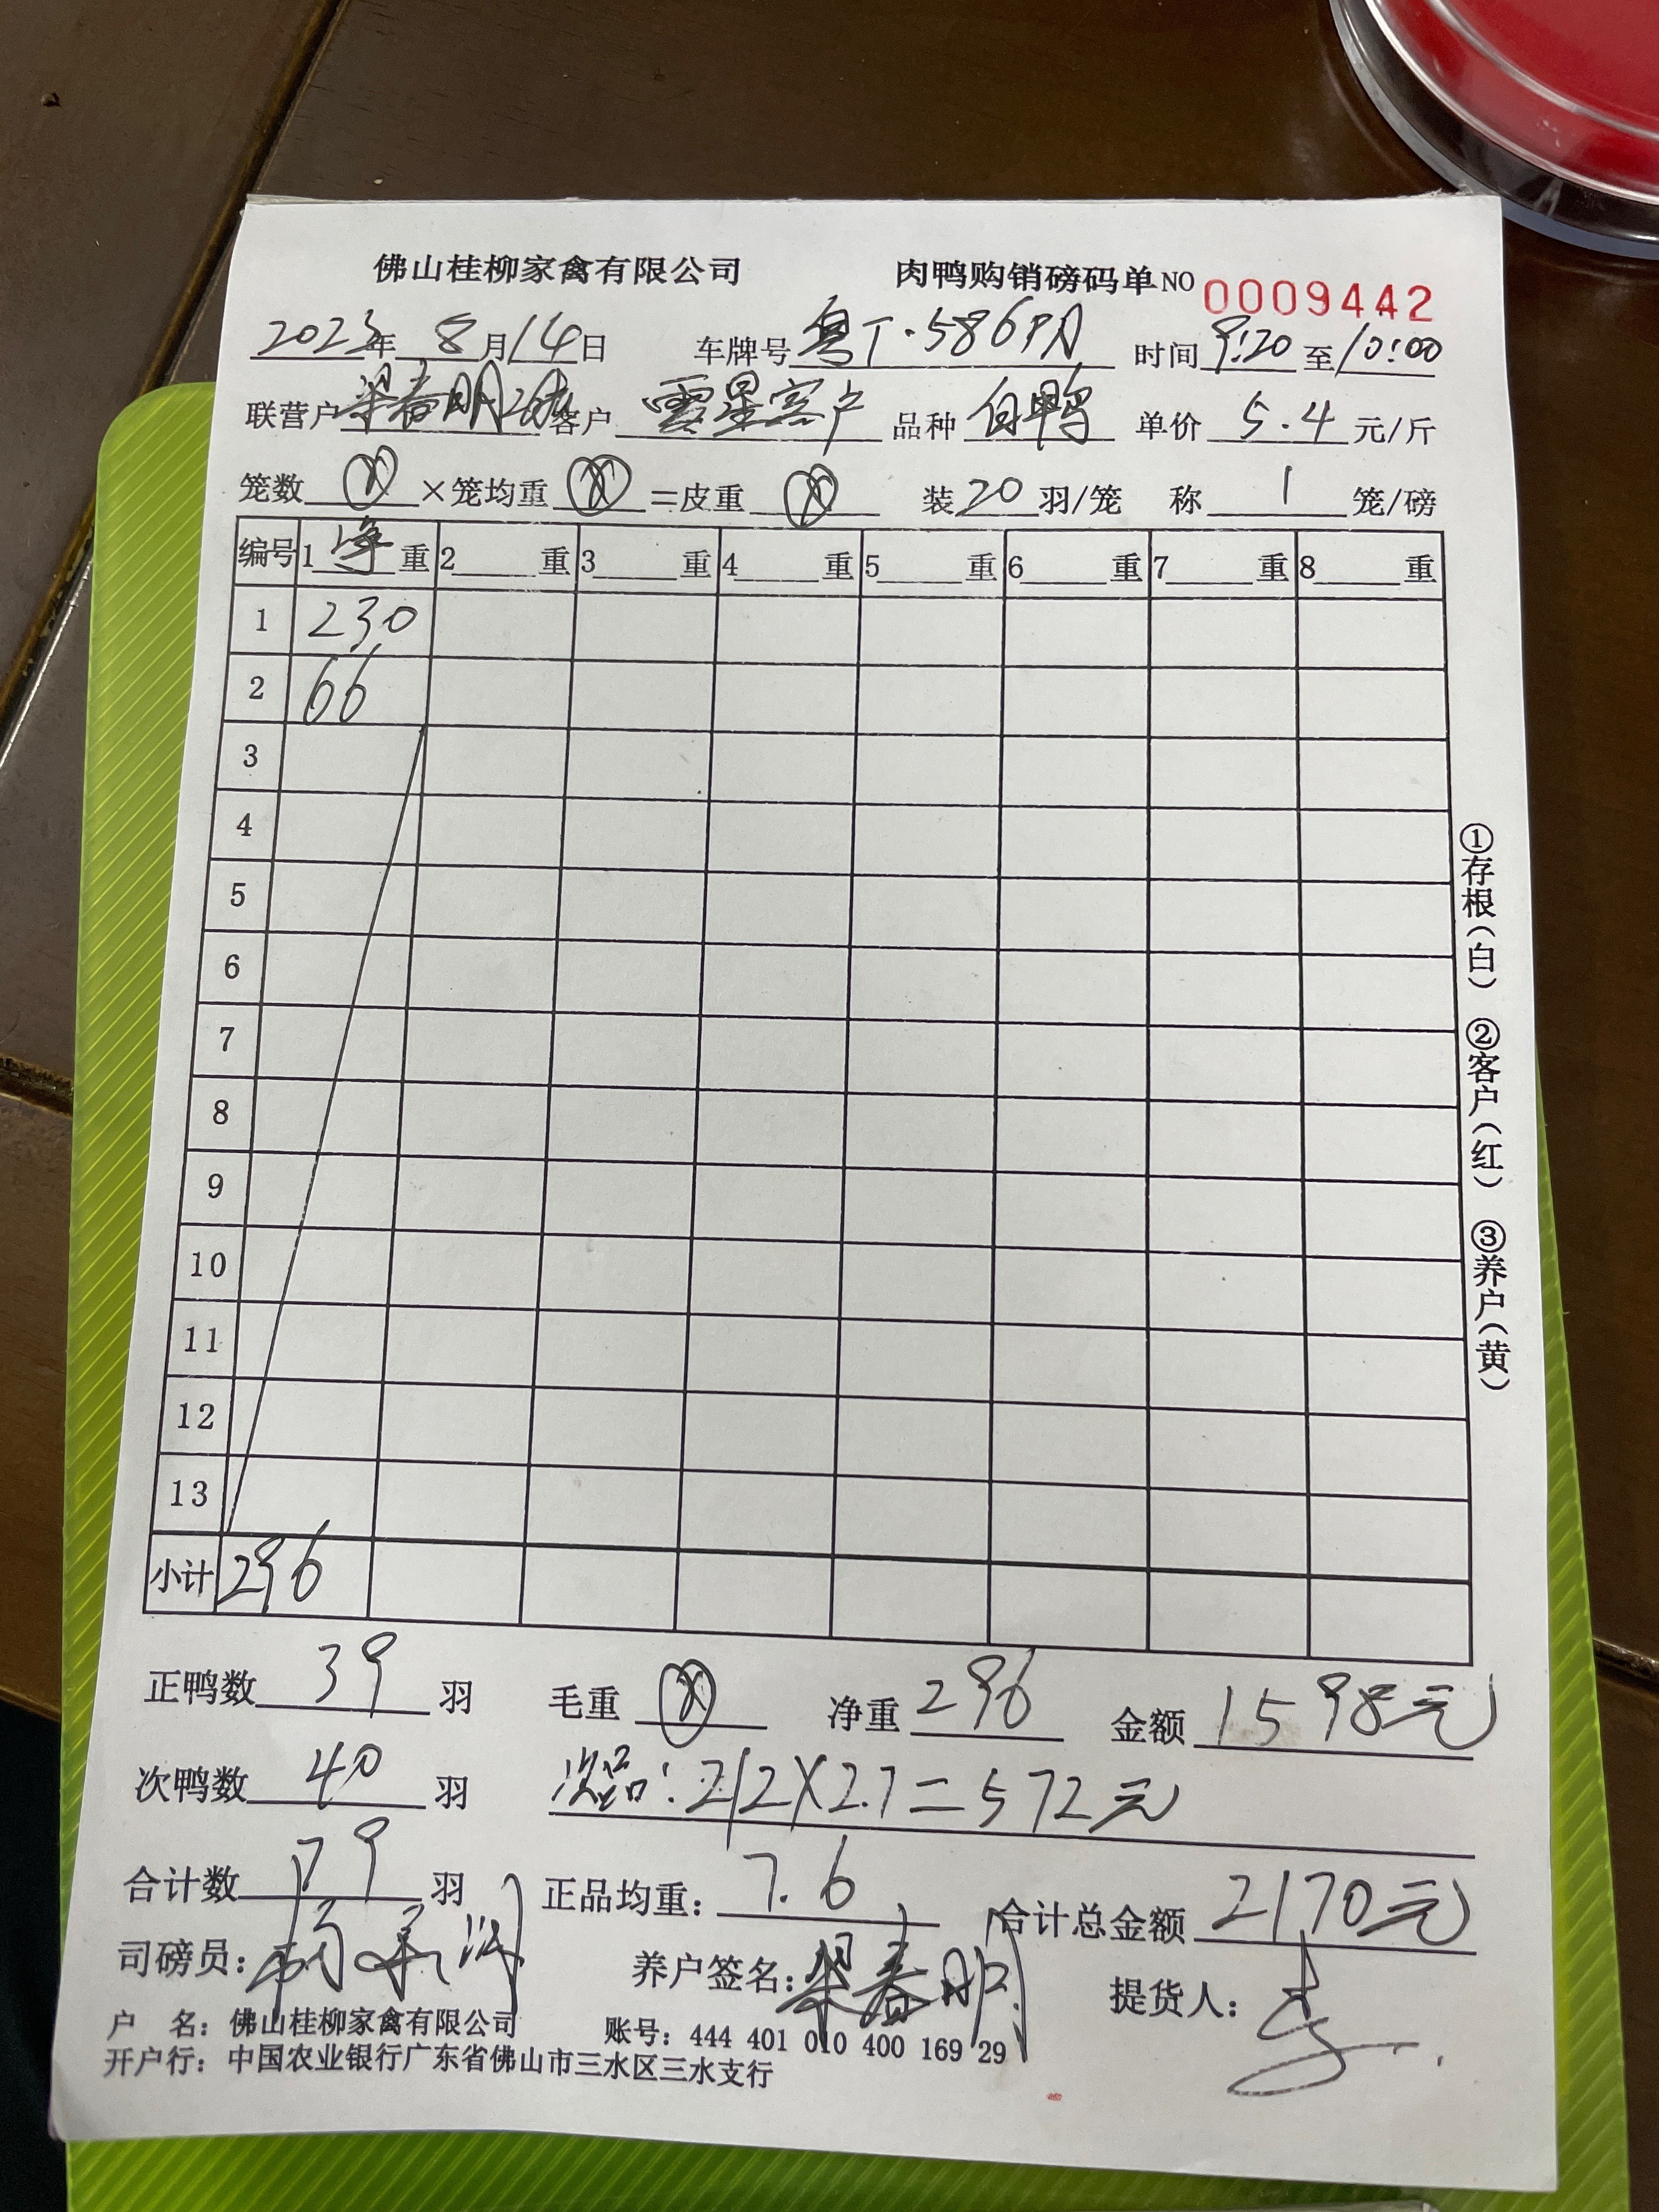 佛山桂柳家禽有限公司 肉鸭购销磅码单NO 0009442
2023年 8月14日 车牌号 粤T·586PA 时间 9:20 至 10:00
联营户 梁春明 客户 雲星客户 品种 白鸭 单价 5.4 元/斤
笼数 ×笼均重 =皮重 装 20 羽/笼 称 1 笼/磅
编号 1 净 重 2 重 3 重 4 重 5 重 6 重 7 重 8 重
1 230
2 66
3
4
5
6
7
8
9
10
11
12
13
小计 296
正鸭数 39 羽 毛重 净重 296 金额 1598元
次鸭数 40 羽 次品:212X2.7=572元
合计数 79 羽 正品均重: 7.6 合计总金额 2170元
司磅员: 养户签名: 梁春明 提货人:
户 名: 佛山桂柳家禽有限公司 账号: 444 401 010 400 169 29
开户行: 中国农业银行广东省佛山市三水区三水支行
①存根(白) ②客户(红) ③养户(黄)